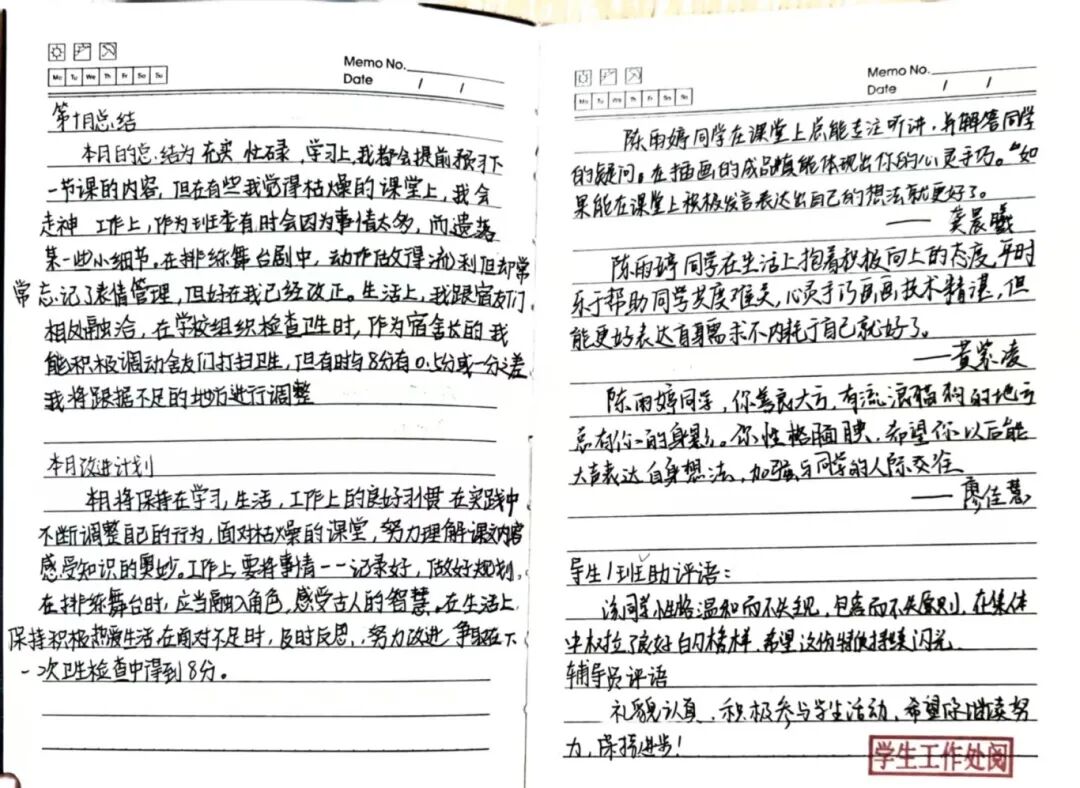 Memo No.
Mo Tu We Th Fr Sa Su
Date / /
第十月总结
本月的总结为充实 忙碌,学习上,我都会提前预习下
一节课的内容,但在有些我觉得枯燥的课堂上,我会
走神 工作上,作为班委有时会因为事情太多,而遗落
某一些小细节。在排练舞台剧中,动作做得流利但却常
常忘记了表情管理,但好在我已经改正。生活上,我跟宿友们
相处融洽,在学校组织检查卫生时,作为宿舍长的我
能积极调动舍友们打扫卫生,但有时与8分有0.5分或一分之差
我将跟据不足的地方进行调整
本月改进计划
本月将保持在学习,生活,工作上的良好习惯 在实践中
不断调整自己的行为,面对枯燥的课堂,努力理解课文内容
感受知识的奥妙。工作上,要将事情一一记录好,做好规划,
在排练舞台时,应当融入角色,感受古人的智慧。在生活上,
保持积极热爱生活,在面对不足时,及时反思,努力改进 争取在下
一次卫生检查中得到8分。
Memo No.
Mo Tu We Th Fr Sa Su
Date / /
陈雨婷同学在课堂上总能专注听讲,并解答同学
的疑问。在插画的成品真能体现出你的心灵手巧。如
果能在课堂上积极发言表达出自己的想法就更好了。
—— 龚晨曦
陈雨婷同学在生活上抱着积极向上的态度,平时
乐于帮助同学共度难关,心灵手巧画画技术精湛,但
能更好表达自身需求不内耗于自己就好了。
——黄紫凌
陈雨婷同学,你善良大方,有流浪猫狗的地方
总有你的身影。你性格腼腆,希望你以后能
大声表达自身想法,加强与同学的人际交往
—— 廖佳慧
导生/班助评语:
该同学性格温和而不失主见,包容而不失原则,在集体
中树立了良好的榜样,希望这份特质持续闪光
辅导员评语
礼貌认真,积极参与学生活动,希望你继续努
力,保持进步!
学生工作处阅